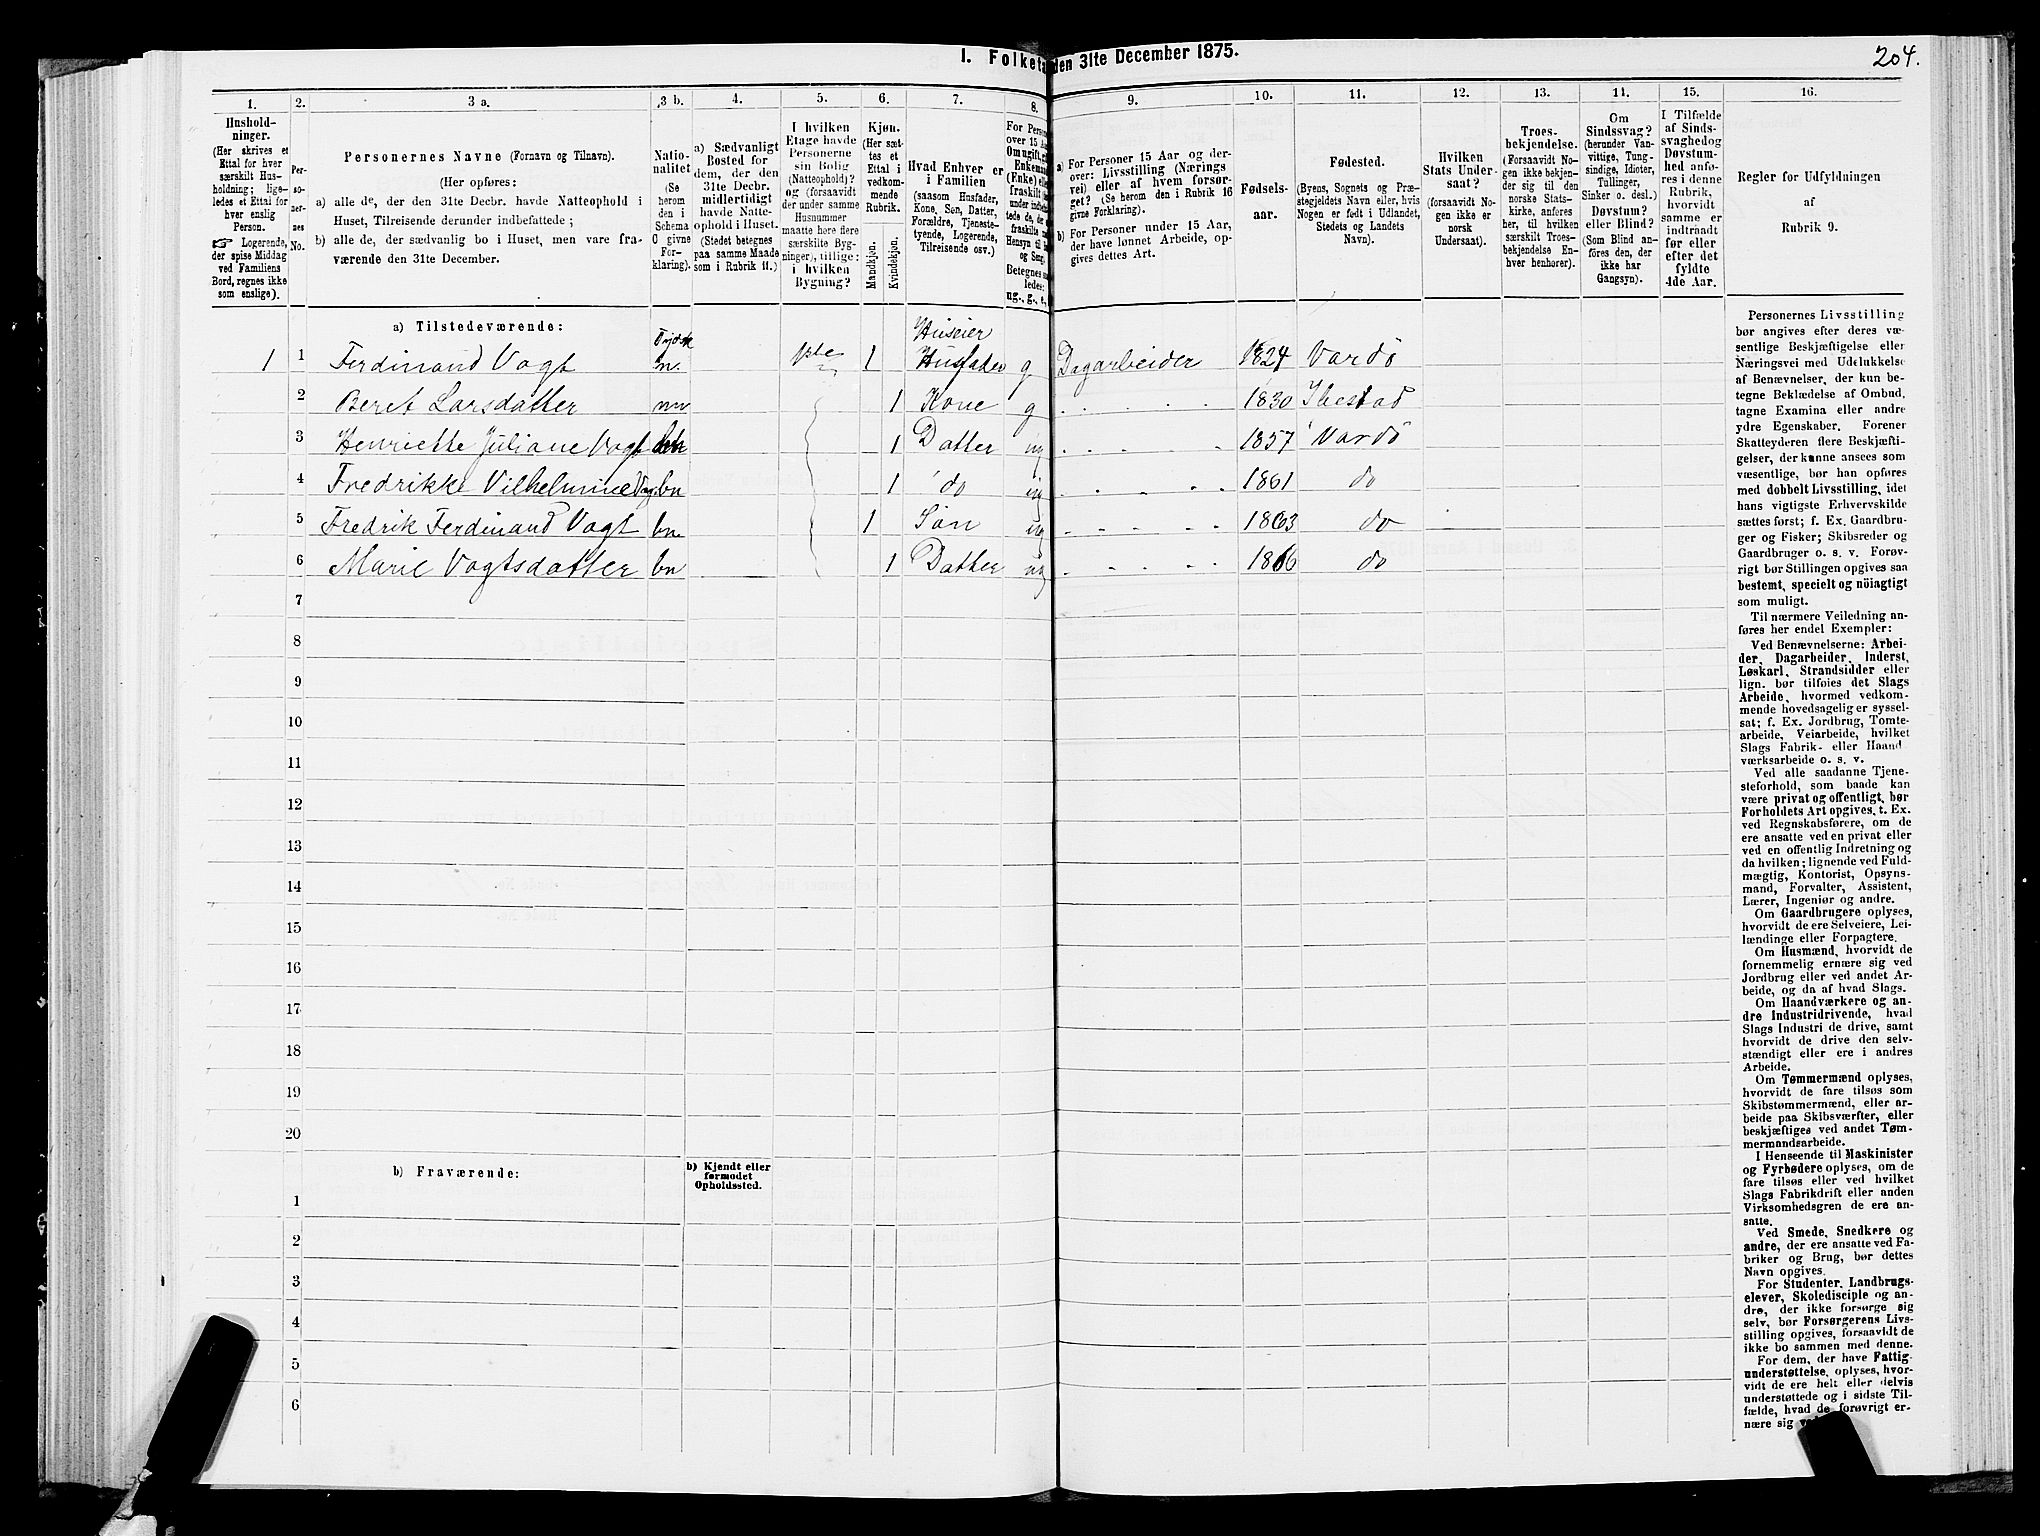 1. Folketæ den 31te December 1875.
204.
1.
2.
3 a.
3 b.
4.
5.
6.
7.
8.
9.
10.
11.
12.
13.
11.
15.
16.
Hushold-
ninger.
(Her skrives et
Ettal for hver
særskilt Hus-
holdning; lige-
ledes et Ettal for
hver enslig
Person.
☞ Logerende,
der spise Middag
ved Familiens
Bord, regnes ikke
som enslige).
Per-
so-
ner-
nes
No.
Personernes Navne (Fornavn og Tilnavn).
(Her opføres:
a) alle de, der den 31te Decbr. havde Natteophold i
Huset, Tilreisende derunder indbefattede;
b) alle de, der sædvanlig bo i Huset, men vare fra-
værende den 31te December.
Natio-
nalitet
(Se
herom
den i
Schema
O givne
For-
klaring).
a) Sædvanligt
Bosted for
dem, der den
31te Decbr.
midlertidigt
havde Natte-
ophold i Huset.
(Stedet betegnes
paa samme Maade
som i Rubrik 11.)
I hvilken
Etage havde
Personerne
sin Bolig
(Natteophold)?
og (forsaavidt
der under samme
Husnummer
maatte høre flere
særskilte Byg-
ninger), tillige:
i hvilken
Bygning?
Kjøn.
(Her sæt-
tes et
Ettal i
vedkom-
mende
Rubrik.
Mandkjøn.
Kvindekjøn.
Hvad Enhver er
i Familien
(saasom Husfader,
Kone, Søn, Datter,
Forældre, Tjeneste-
tyende, Logerende,
Tilreisende osv.)
For Persone
over 15 Aar
Om ugift, g
Enkeman
(Enke) elle
fraskilt
under indbefat
tede de, de
fraskilte
Hensyn til
og Seng.
Betegnes saa
ledes:
ug., g., e.,
a) For Personer 15 Aar og der-
over: Livsstilling (Nærings
vei) eller af hvem forsør-
get? (Se herom den i Rubrik 16
givne Forklaring).
b) For Personer under 15 Aar,
der have lønnet Arbeide, op-
gives dettes Art.
Fødsels-
aar.
Fødested.
(Byens, Sognets og Præ-
stegjeldets Navn eller, hvis
Nogen er født i Udlandet,
Stedets og Landets
Navn).
Hvilken
Stats Under-
saat?
(forsaavidt No-
gen ikke er
norsk
Undersaat).
Troes-
bekjendelse.
(Forsaavidt No-
gen ikke bekjen-
der sig til den
norske Stats-
kirke, anføres
her, til hvilken
særskilt Troes-
bekjendelse En-
hver henhører).
Om
Sindssvag?
(herunder Van-
vittige, Tung-
sindige, Idioter,
Tullinger,
Sinker o. desl.)
Døvstum?
eller Blind?
(Som Blind an-
føres den, der
ikke har
Gangsyn).
I Tilfælde
af Sinds-
svaghed og
Døvstum-
hed anfø-
res i denne
Rubrik,
hvorvidt
samme er
indtraadt
før eller
efter det
fyldte
4de Aar.
Regler for Udfyldningen
af
Rubrik 9.
a) Tilstedeværende:
Tydsk
Huseier
1 1 Ferdinand Vogt n. 1ste 1 Husfader g Dagarbeider 1824 Vardö
2 Beret Larsdatter nn 1 Kone g 1830 Ibestad
3 Henriette Juliane Vogt bn 1 Datter ug 1857 Vardö
4 Fredrikke Vilhelmine Vogt bn 1 do ug 1861 do
5 Fredrik Ferdinand Vogt bn 1 Søn ug 1863 do
6 Marie Vogtsdatter bn 1 Datter ug 1866 do
7
8
9
10
11
12
13
14
15
16
17
18
19
20
b) Fraværende:
b) Kjendt eller
formodet
Opholdssted.
1
2
3
4
5
6
Personernes Livsstilling
bør angives efter deres væ-
sentlige Beskjæftigelse eller
Næringsvei med Udelukkelse
af Benævnelser, der kun be-
tegne Beklædelse af Ombud,
tagne Examina eller andre
ydre Egenskaber. Forener
Skatteyderen flere Beskjæfti-
gelser, der kunne ansees som
væsentlige, bør han opføres
med dobbelt Livsstilling, idet
hans vigtigste Erhvervskilde
sættes først; f. Ex. Gaardbru-
ger og Fisker; Skibsreder og
Gaardbruger o. s. v. Forøv-
rigt bør Stillingen opgives saa
bestemt, specielt og nöiagtigt
som muligt.
Til nærmere Veiledning an-
føres her endel Exempler:
Ved Benævnelserne: Arbei-
der, Dagarbeider, Inderst,
Løskarl, Strandsidder eller
lign. bør tilføies det Slags
Arbeide, hvormed vedkom-
mende hovedsagelig er syssel-
sat; f. Ex. Jordbrug, Tomte-
arbeide, Veiarbeide, hvilket
Slags Fabrik- eller Haand
værksarbeide o. s. v.
Ved alle saadanne Tjene-
steforhold, som baade kan
være privat og offentligt, bør
Forholdets Art opgives, t. Ex.
ved Regnskabsførere, om de
ere ansatte ved en privat eller
ved en offentlig Indretning og
da hvilken; lignende ved Fuld-
mægtig, Kontorist, Opsyns-
mand, Forvalter, Assistent,
Lærer, Ingeniør og andre.
Om Gaardbrugere oplyses,
hvorvidt de ere Selveiere, Lei-
lændinge eller Forpagtere.
Om Husmænd, hvorvidt de
fornemmelig ernære sig ved
Jordbrug eller ved andet Ar-
beide, og da af hvad Slags.
Om Haandværkere og an-
dre Industridrivende, hvad
Slags Industri de drive, samt
hvorvidt de drive den selv-
stændigt eller ere i andres
Arbeide.
Om Tømmermænd oplyses,
hvorvidt de fare tilsøs som
Skibstømmermænd, eller ar-
beide paa Skibsværfter, eller
beskjæftiges ved andet Tøm-
mermandsarbeide.
I Henseende til Maskinister
og Fyrbødere oplyses, om de
fare tilsøs eller ved hvilket
Slags Fabrikdrift eller anden
Virksomhedsgren de ere an-
satte.
Ved Smede, Snedkere og
andre, der ere ansatte ved Fa-
briker og Brug, bør dettes
Navn opgives.
For Studenter, Landbrugs-
elever, Skoledisciple og an-
dre, der ikke forsørge sig
selv, bør Forsørgerens Livs-
stilling opgives, forsaavidt de
ikke bo sammen med denne.
For dem, der have Fattig-
understøttelse, oplyses, hvor-
vidt de ere helt eller delvis
understøttede og i sidste Til-
fælde, hvad de forøvrigt er-
nære sig